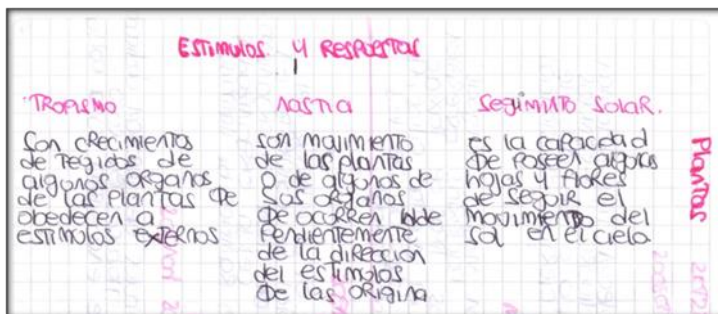 Estimulos y Respuestas
Tropismo
Son crecimientos
de tegidos de
algunos organos
de las plantas que
obedecen a
estimulos externos
nastia
son movimiento
de las plantas
o de algunos de
sus organos
que ocurren inde
pendientemente
de la direccion
del estimulos
que las origina
Segimiento Solar.
es la capacidad
que poseen algunas
hojas y flores
de seguir el
movimiento del
sol en el cielo
Plantas